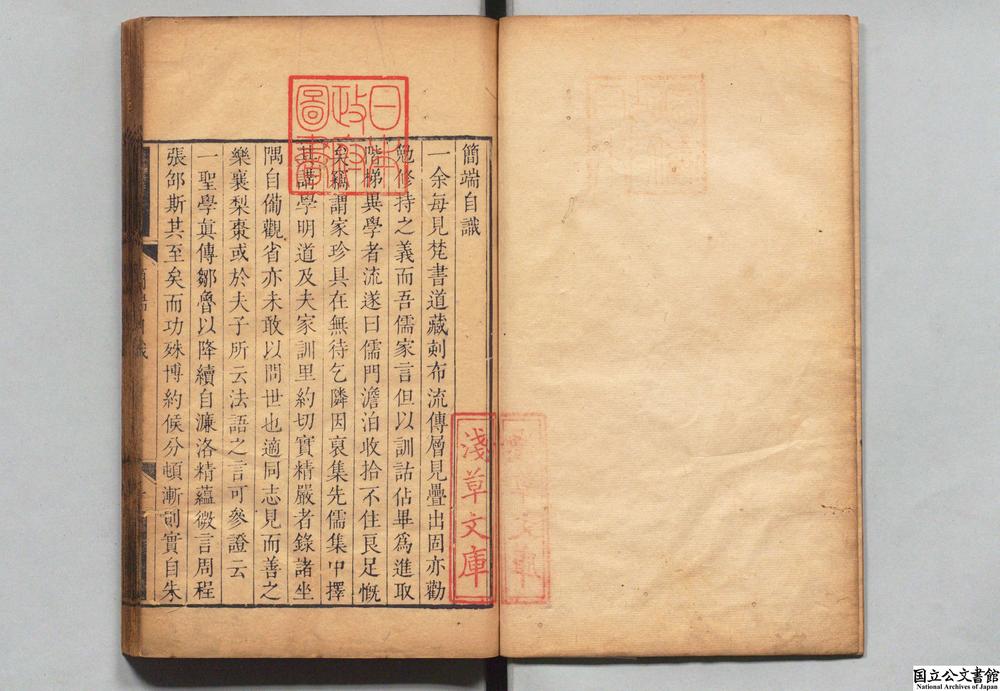 簡端自識
一余每見梵書道藏剞布流傳層見疊出固亦勸
勉修持之義而吾儒家言但以訓詁佔畢為進取
階梯異學者流遂曰儒門澹泊收拾不住良足慨
矣竊謂家珍具在無待乞隣因裒集先儒集中擇
其講學明道及夫家訓里約切實精嚴者錄諸坐
隅自備觀省亦未敢以問世也適同志見而善之
樂襄梨棗或於夫子所云法語之言可參證云
一聖學眞傳鄒魯以降續自濂洛精蘊微言周程
張邵斯其至矣而功殊博約候分頓漸則實自朱
簡端自識
日本政府圖書
淺草文庫
国立公文書館
National Archives of Japan